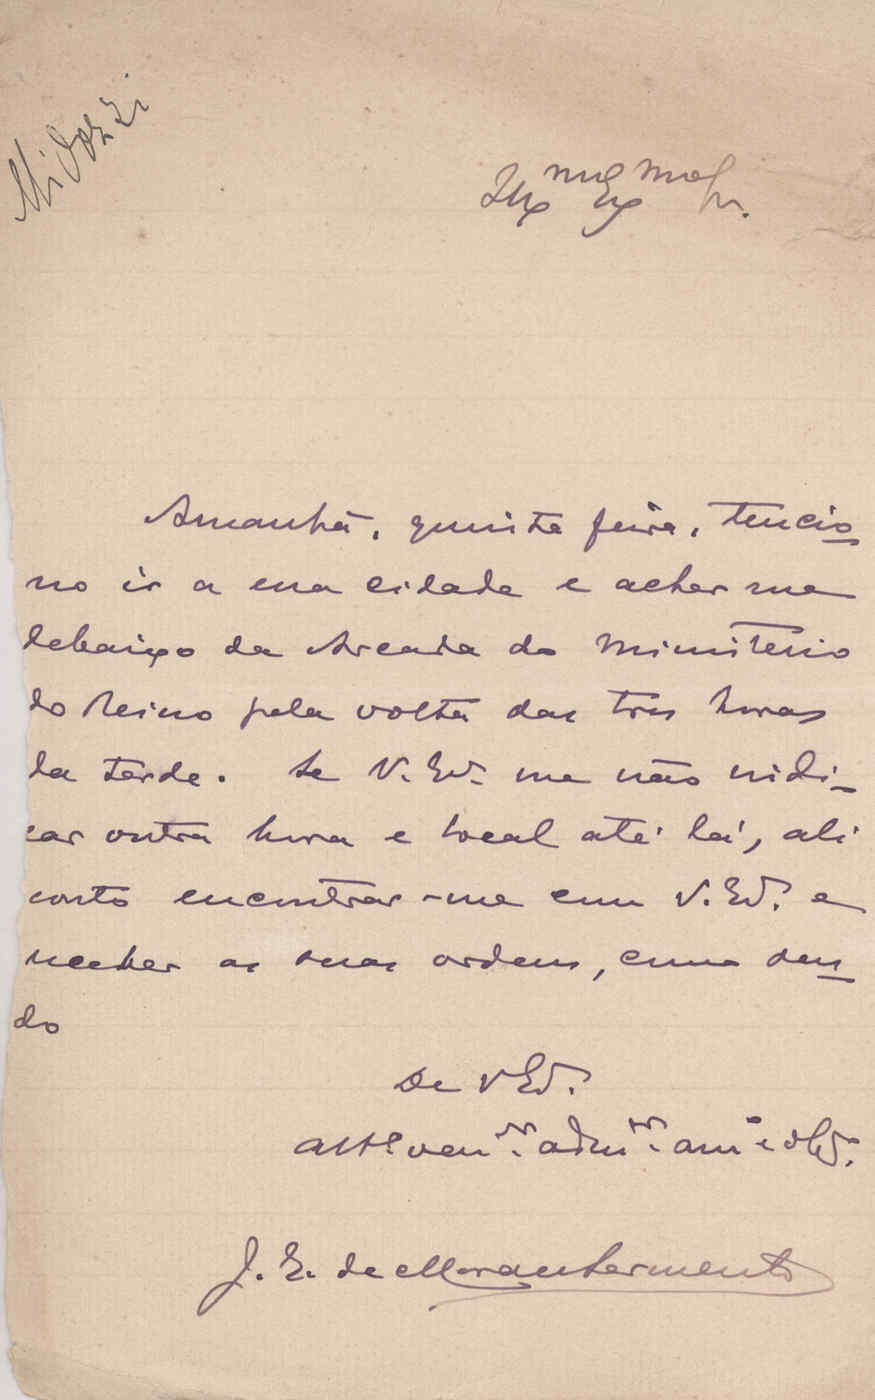 Midosi
Illmo Exmo Sr.
Amanhã, quinta feira, tencio-
no ir a essa cidade e achar me
debaixo da Arcada do Ministerio
do Reino pela volta das tres horas
da tarde. Se V. Exª. me não indi-
car outra hora e local até lá, ali
conto encontrar-me com V. Exª. e
receber as suas ordens, como sen-
do
De V Exª.
attº ven.ᵒʳ adm.ᵒʳ amº e obgº.
J. E. de